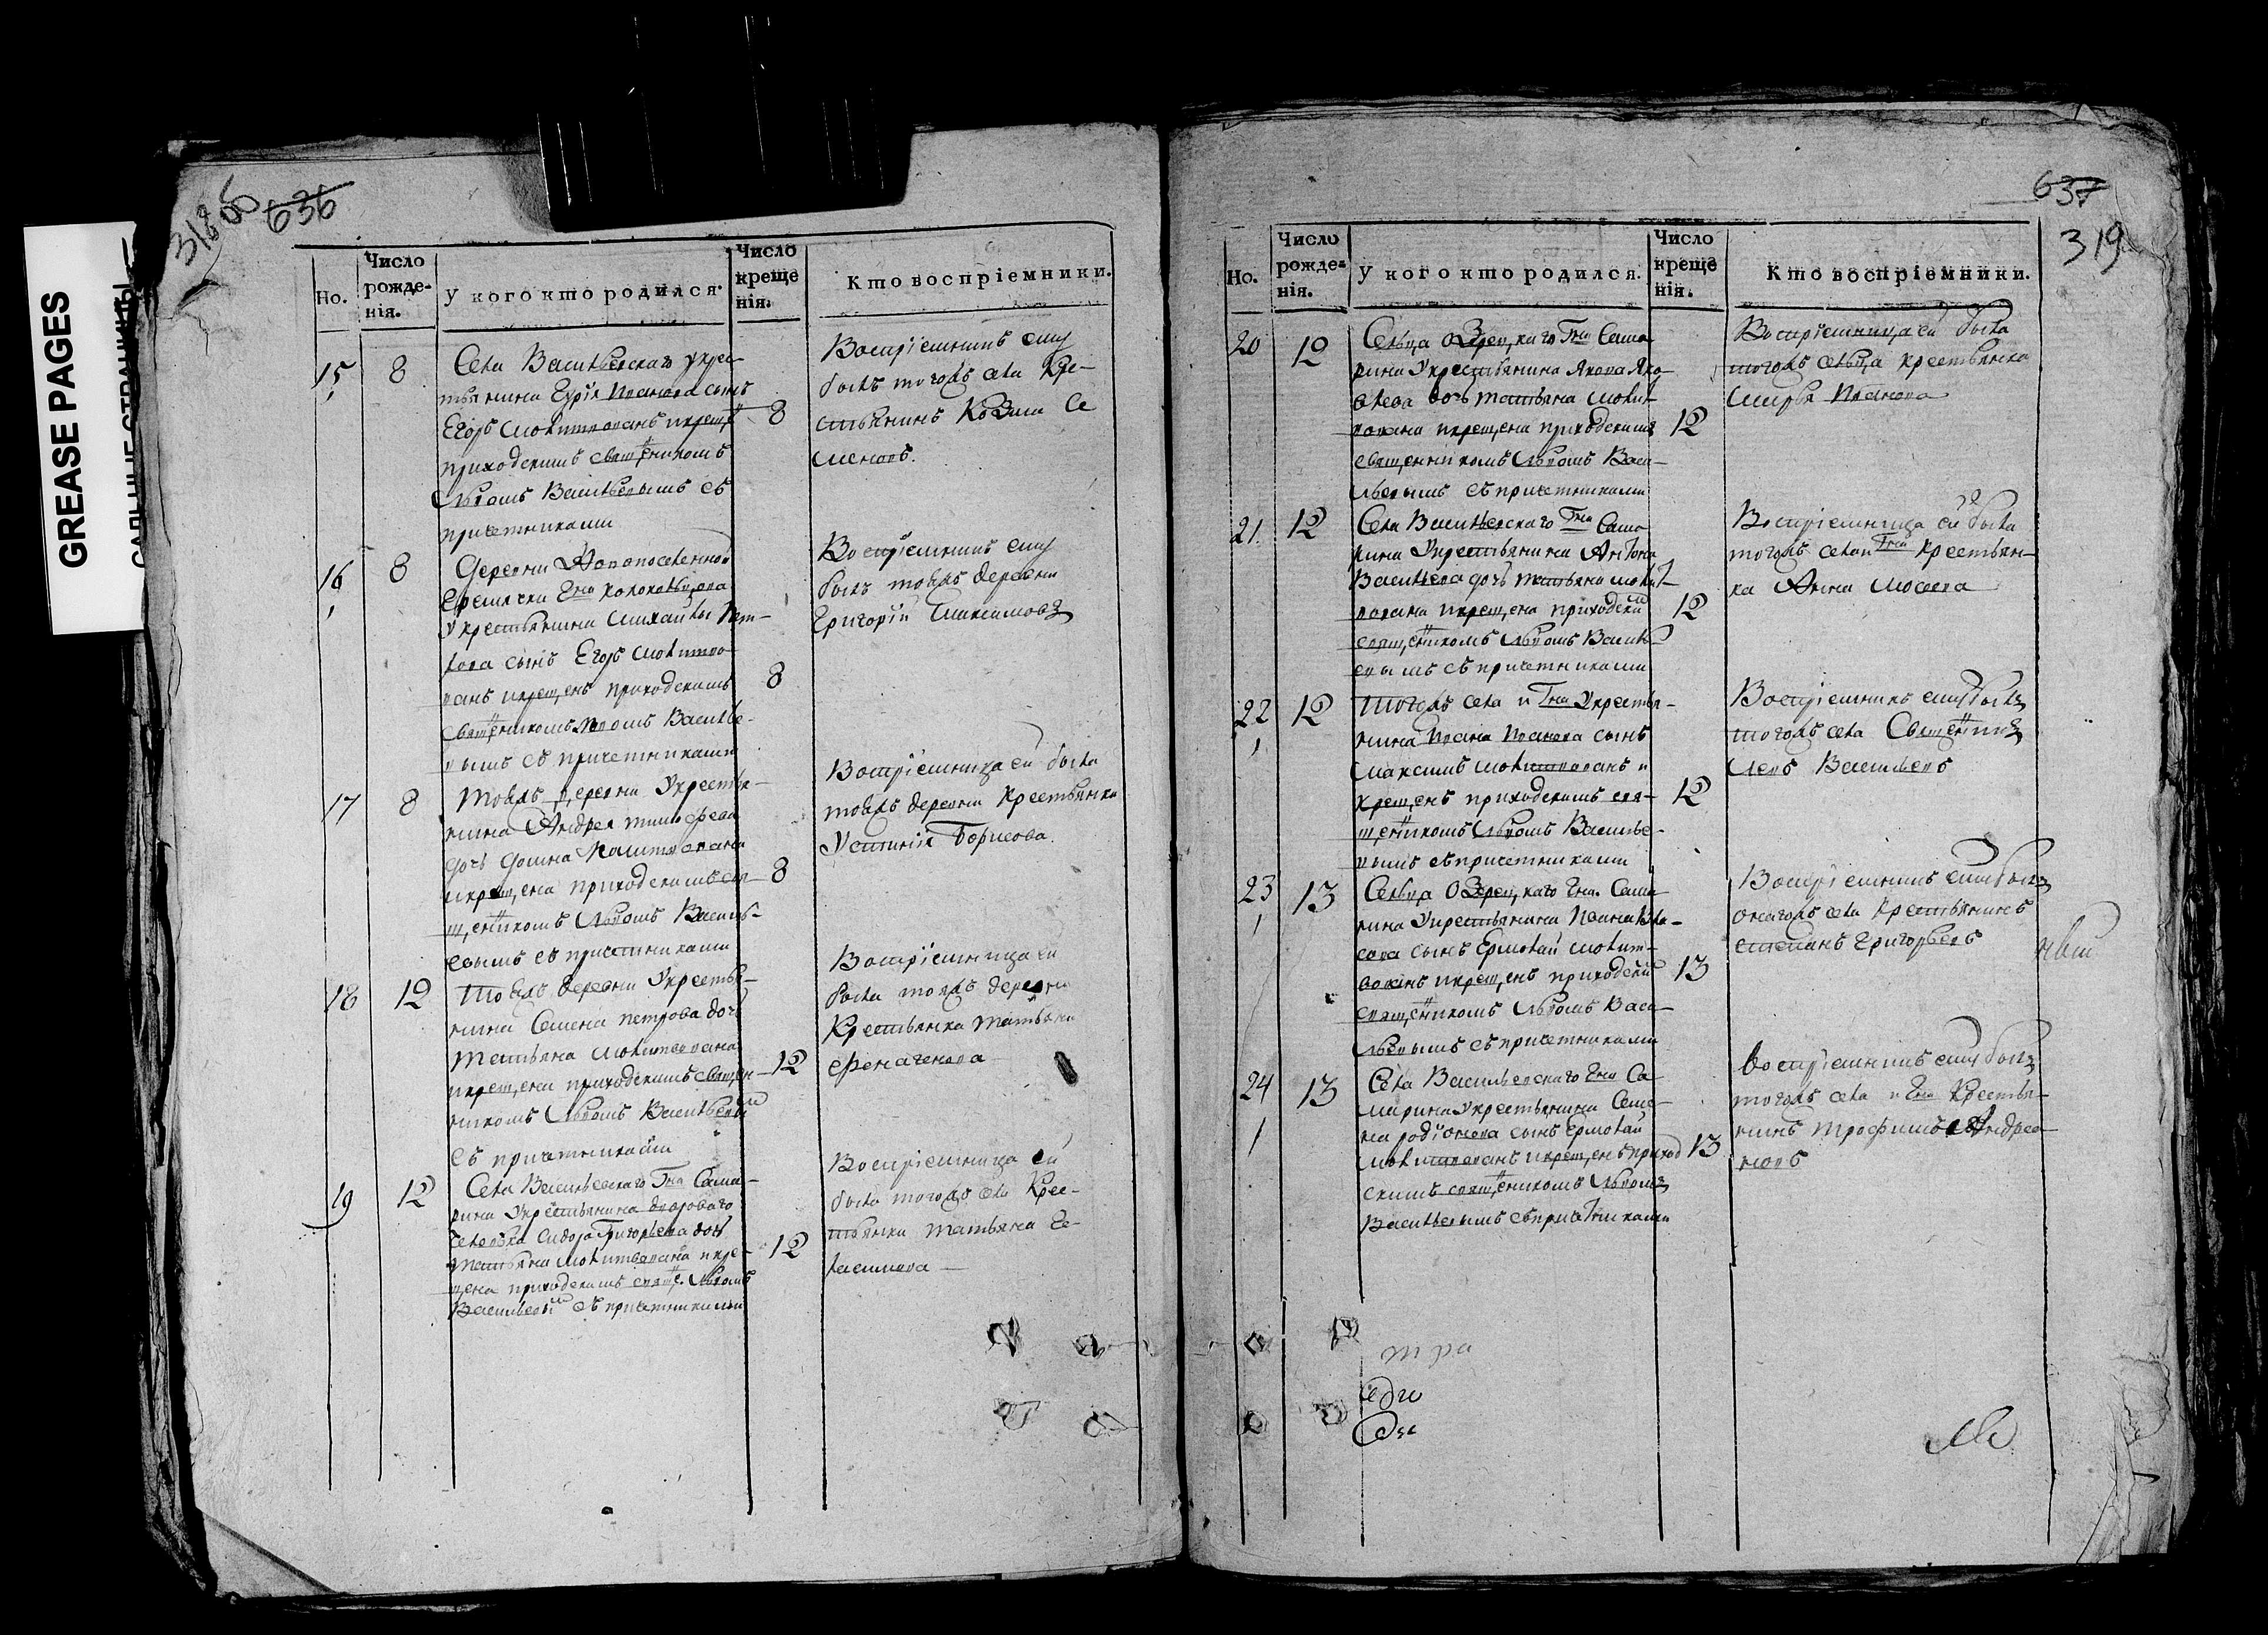 GREASE PAGES
САЛЬНЫЕ СТРАНИЦЫ
636
Но.
Число рожденія.
У кого кто родился.
Число крещенія.
Кто воспріемники.
15 8
Села Васильевскаго укрес-
тьянина Гурія Иванова сынъ
Егоръ молитвованъ икрещ.
приходскимъ священикомъ
Львомъ Васильевымъ съ
причетниками
8
Воспріемникъ ему
былъ тогожъ села Кре-
стьянинъ Козма Се
меновъ.
16 8
Деревни Новопоселенной
Гна
Укрестьянина Михайлы Пет-
рова сынъ Егоръ молитво-
ванъ икрещенъ приходскимъ
священикомъ Львомъ Василье-
вымъ съ причетниками
8
Воспріемникъ ему
былъ тояжъ деревни
Григорій Максимовъ
17 8
Тояжъ деревни Укрестья-
нина Андрея Тимофеева
дочь Домна молитвована
икрещена приходскимъ свя-
щеникомъ Львомъ Василь-
евымъ съ причетниками
8
Воспріемница ей была
тояжъ деревни Крестьянка
Устинія Борисова.
18 12
Тояжъ деревни Укрестья-
нина Семена Петрова дочь
Татьяна молитвована
икрещена приходскимъ священ-
никомъ Львомъ Васильевым
съ причетниками
12
Воспріемница ей
была тояжъ деревни
Крестьянка Татьяна
19 12
Села Васильевскаго Гна Сама-
рина Укрестьянина дворового
человѣка Сидора Григорьева дочь
Татьяна молитвована икре-
щена приходскимъ свящ. Львомъ
Васильевым съ причетниками
12
Воспріемница ей
была тогожъ села Крес-
тьянка Татьяна Ге-
расимова
637
319
Но.
Число рожденія.
У кого кто родился.
Число крещенія.
Кто воспріемники.
20 12
Сельца Озрецкаго Гна Сама-
рина Укрестьянина Якова Яко-
влева дочь Татьяна молит-
вована икрещена приходскимъ
священникомъ Львомъ Васи-
льевымъ съ причетниками
12
Воспріемница ей была
тогожъ сельца крестьянка
Марья Иванова
21. 12
Села Васильевскаго Гна Сама-
рина Укрестьянина Антона
Васильева дочь Татьяна молит-
вована икрещена приходским
священикомъ Львомъ Василь-
евымъ съ причетниками
12
Воспріемница ей была
тогожъ села и Гна Крестьян-
ка Анна Мосеева
22 12
Тогожъ села и Гна Укрестья-
нина Ивана Иванова сынъ
Максимъ молитвованъ и
крещенъ приходскимъ свя-
щеникомъ Львомъ Василье-
вымъ съ причетниками
12
Воспріемникъ ему былъ
тогожъ села Священикъ
Левъ Васильевъ
23 13
Сельца Озрецкаго Гна. Сама-
рина Укрестьянина Ивана Вла-
сова сынъ Ермолай молит-
вованъ икрещенъ приходским
священикомъ Львомъ Васи-
льевымъ съ причетниками
13
Воспріемникъ ему былъ
онагожъ села Крестьянинъ
Степанъ Григорьевъ
24 13
Села Васильевскаго Гна Са-
марина Укрестьянина Семе-
на Родіонова сынъ Ермолай
молитвованъ икрещенъ приход
скимъ священикомъ Львомъ
Васильевымъ съ причетниками
13
Воспріемникъ ему былъ
тогожъ села и Гна Крестья-
нинъ Трофимъ Андреа-
новъ
тра